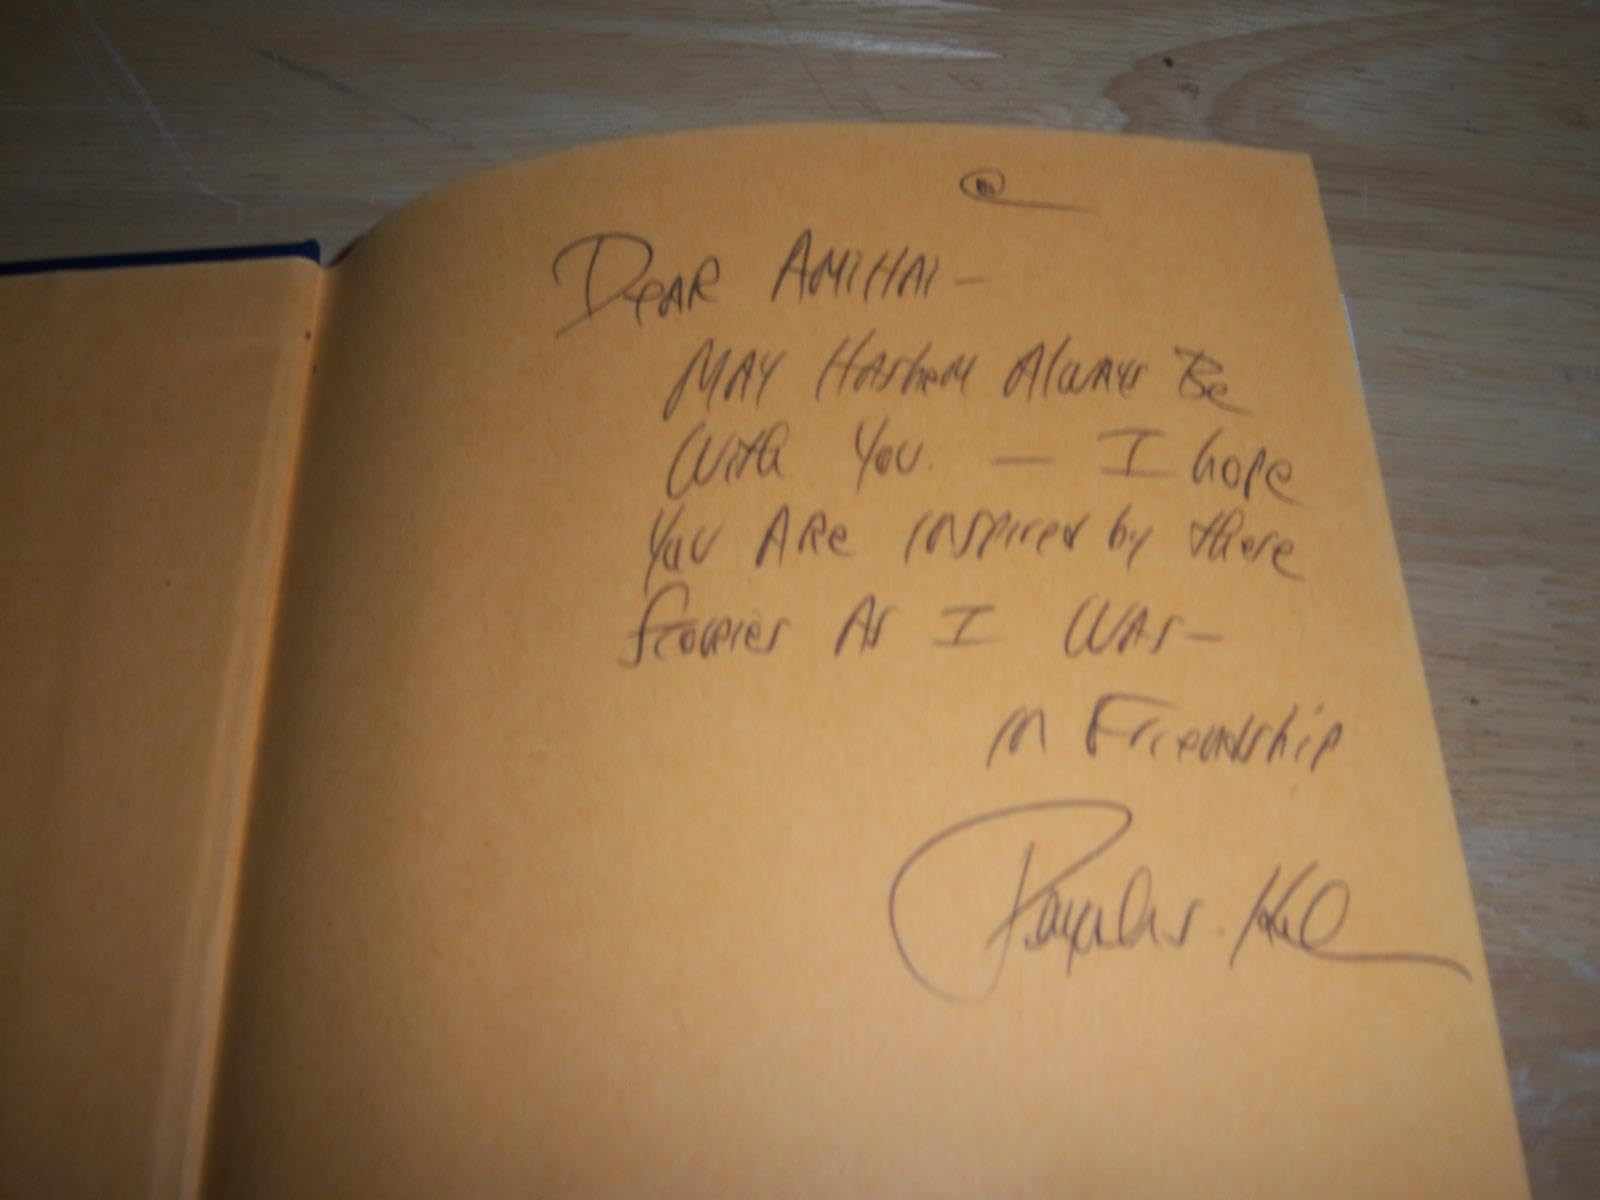 Dear Amihai -
May Hashem Always Be
With You. — I hope
You Are inspired by these
stories As I Was -
in Friendship